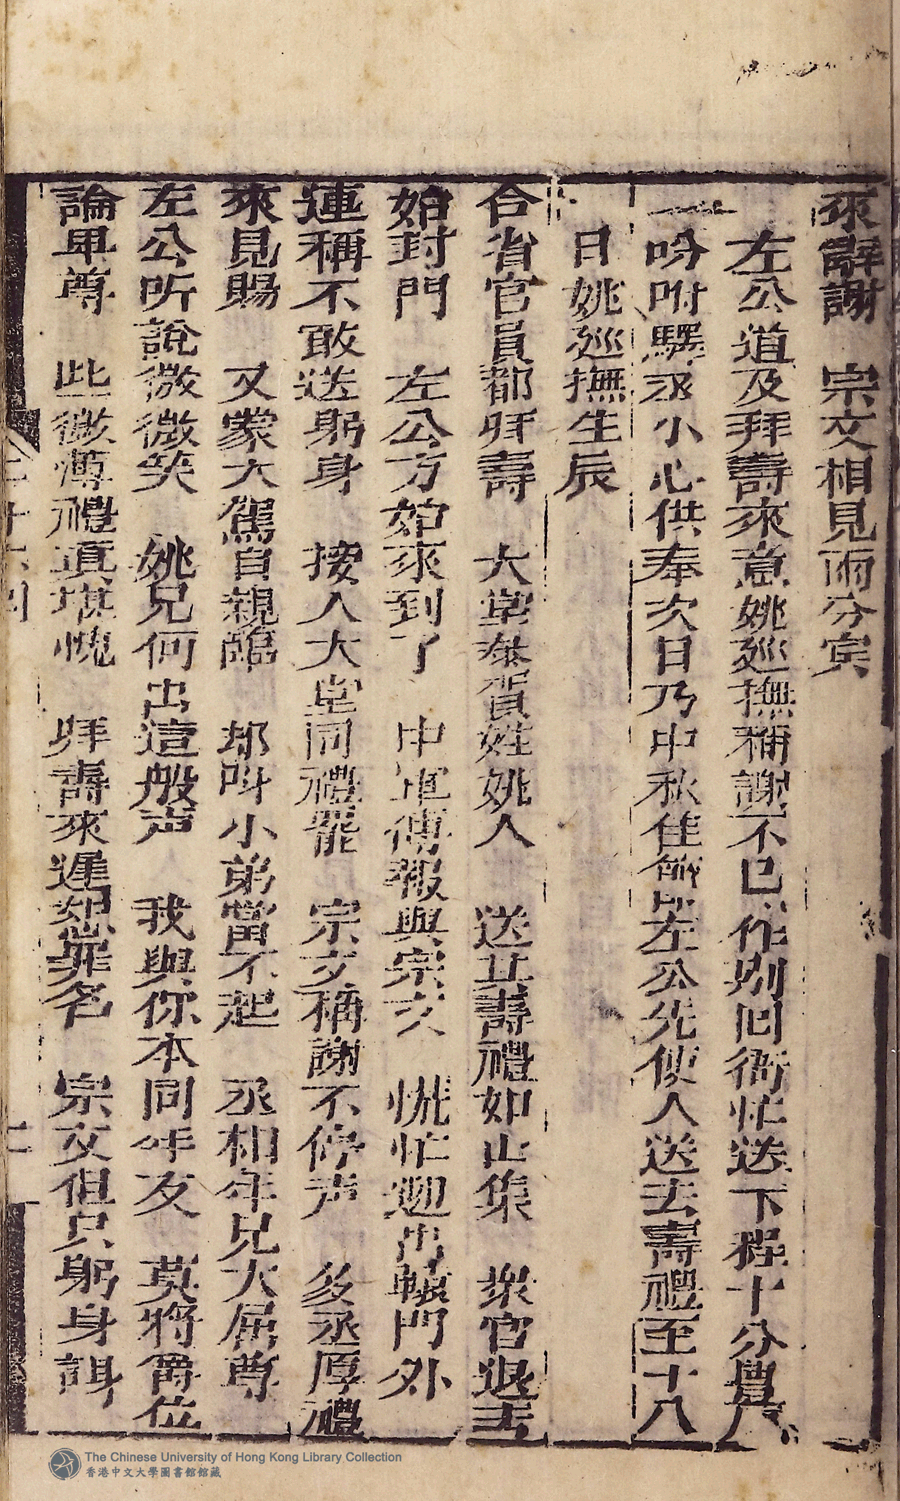 來辭謝　宗文相見兩分賓
左公道及拜壽來意姚廵撫稱謝不已作別囘衙忙送下程十分豊
一吩咐驛丞小心供奉次日乃中秋佳節左公先使人送去壽禮至十八
日姚廵撫生辰
合省官員都拜壽　大堂叅賀姓姚人　送其壽禮如山集　衆官退去
始封門　左公方始來到了　中軍傳報與宗文　慌忙迎出轅門外
連稱不敢送躬身　接入大堂同禮罷　宗文稱謝不停声　多丞厚禮
來見賜　又蒙大駕自親臨　却呌小弟當不起　丞相年兄大屈尊
左公听說微微笑　姚兄何出這般声　我與你本同年友　莫將爵位
論卑尊　此微薄禮真堪愧　拜壽來遲恕罪名　宗文但只躬身謝
The Chinese University of Hong Kong Library Collection
香港中文大學圖書館館藏